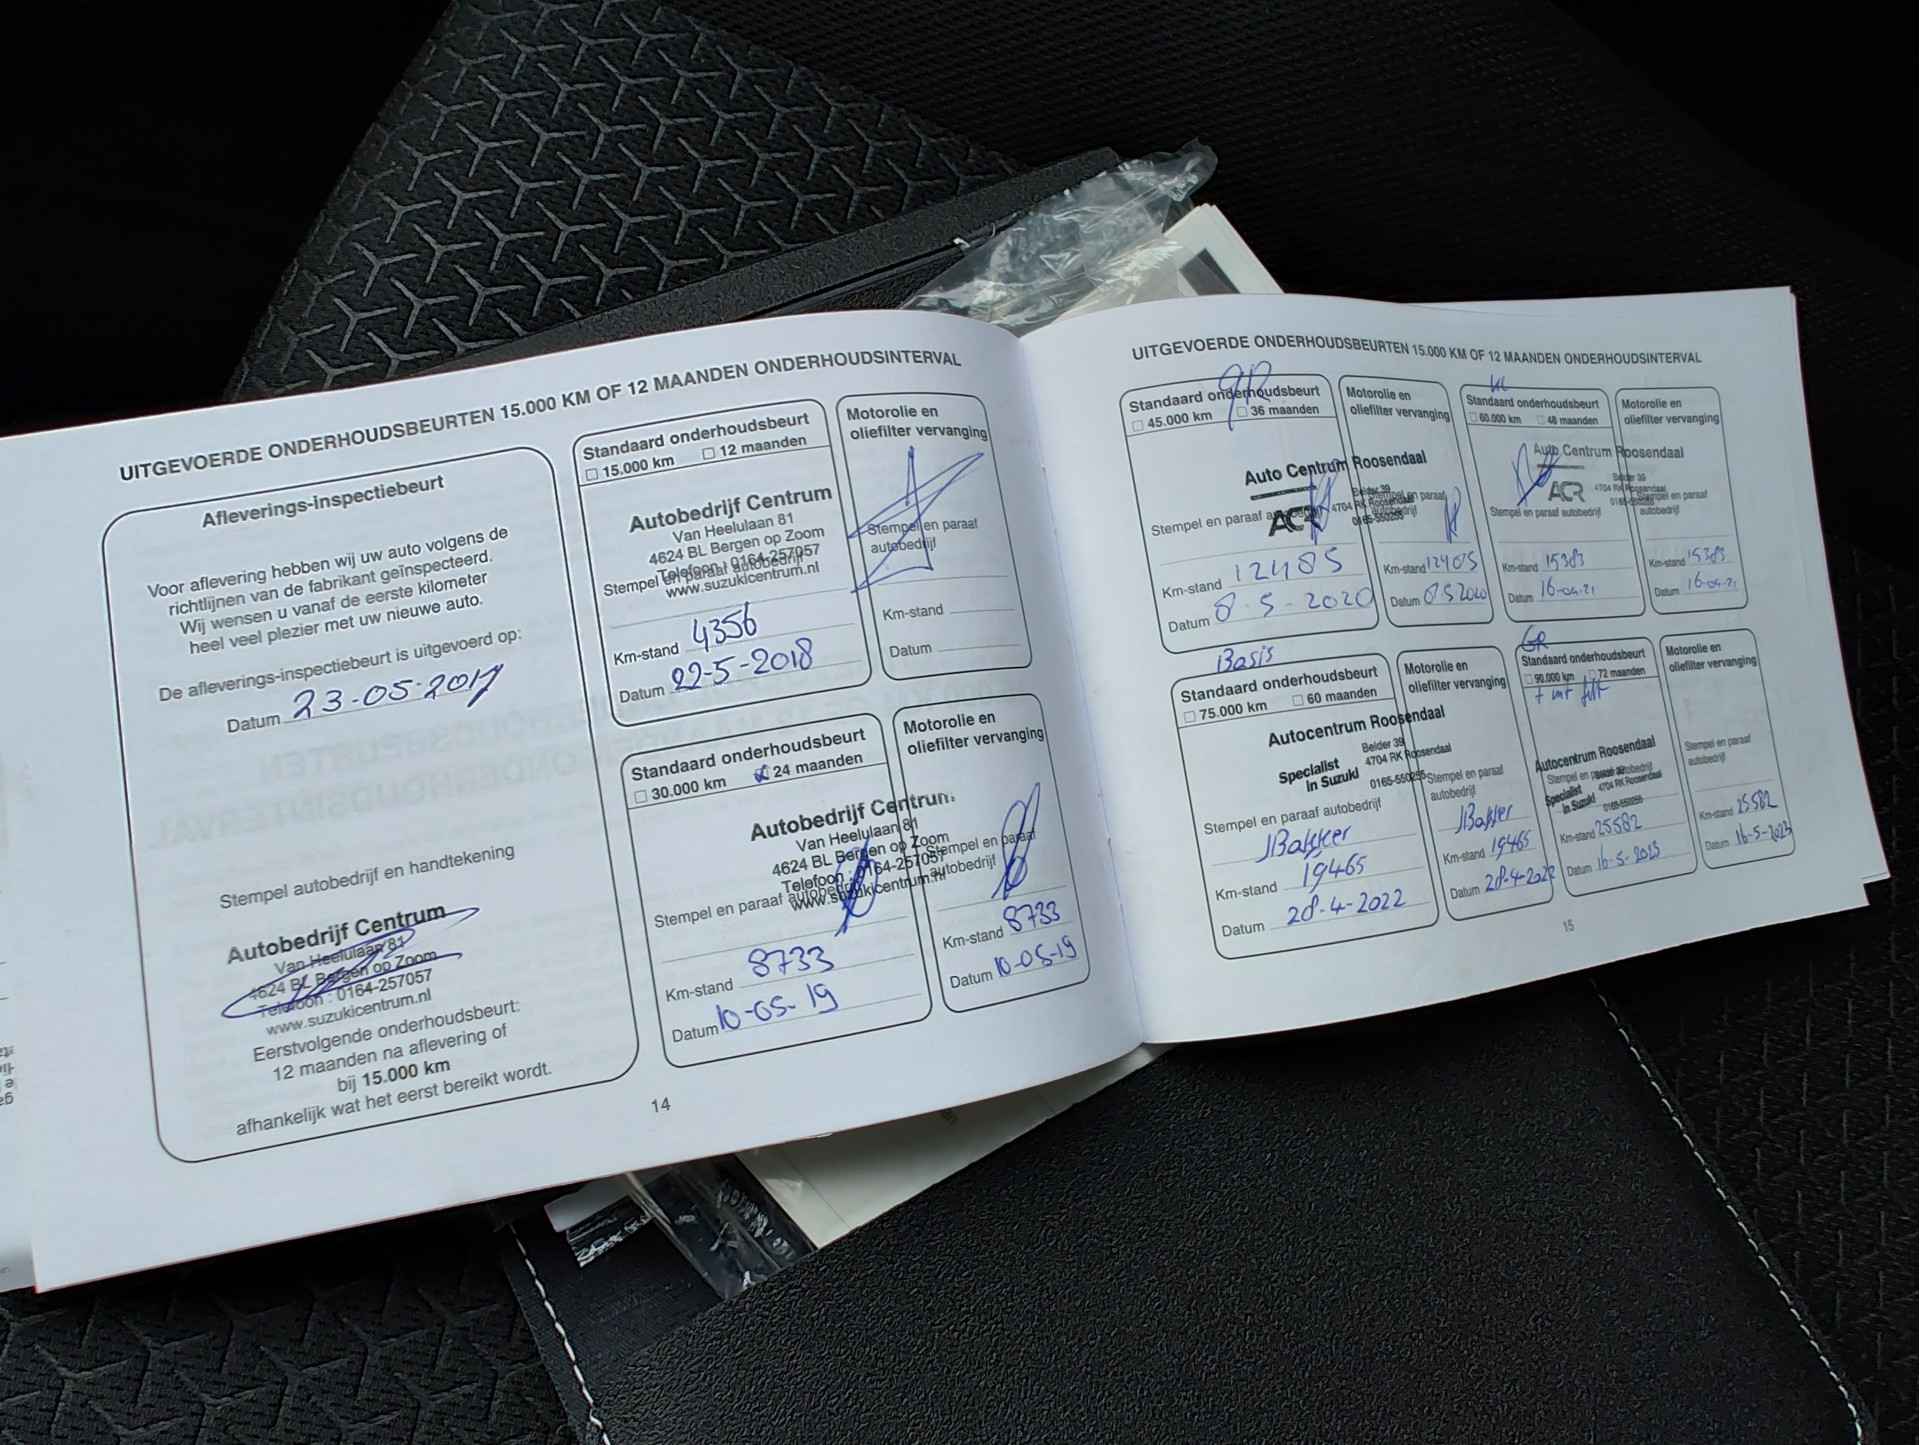 UITGEVOERDE ONDERHOUDSBEURTEN 15.000 KM OF 12 MAANDEN ONDERHOUDSINTERVAL
Afleverings-inspectiebeurt
Voor aflevering hebben wij uw auto volgens de
richtlijnen van de fabrikant geïnspecteerd.
Wij wensen u vanaf de eerste kilometer
heel veel plezier met uw nieuwe auto.
De afleverings-inspectiebeurt is uitgevoerd op:
Datum 23-05-2017
Stempel autobedrijf en handtekening
Autobedrijf Centrum
Van Heelulaan 81
4624 BL Bergen op Zoom
Telefoon : 0164-257057
www.suzukicentrum.nl
Eerstvolgende onderhoudsbeurt:
12 maanden na aflevering of
bij 15.000 km
afhankelijk wat het eerst bereikt wordt.
Standaard onderhoudsbeurt
15.000 km 12 maanden
Autobedrijf Centrum
Van Heelulaan 81
4624 BL Bergen op Zoom
Telefoon : 0164-257057
Stempel en paraaf autobedrijf
www.suzukicentrum.nl
Km-stand 4356
Datum 22-5-2018
Motorolie en
oliefilter vervanging
Stempel en paraaf
autobedrijf
Km-stand
Datum
Standaard onderhoudsbeurt
30.000 km 24 maanden
Autobedrijf Centrum
Van Heelulaan 81
4624 BL Bergen op Zoom
Telefoon : 0164-257057
Stempel en paraaf autobedrijf
www.suzukicentrum.nl
Km-stand 8733
Datum 10-05-19
Motorolie en
oliefilter vervanging
Stempel en paraaf
autobedrijf
Km-stand 8733
Datum 10-05-19
14
UITGEVOERDE ONDERHOUDSBEURTEN 15.000 KM OF 12 MAANDEN ONDERHOUDSINTERVAL
GR
Standaard onderhoudsbeurt
45.000 km 36 maanden
Auto Centrum Roosendaal
Belder 39
4704 RK Roosendaal
0165-550255
ACR
Stempel en paraaf autobedrijf
Km-stand 12485
Datum 8-5-2020
Motorolie en
oliefilter vervanging
Stempel en paraaf
autobedrijf
Km-stand 12485
Datum 8 5 2020
Standaard onderhoudsbeurt
60.000 km 48 maanden
Auto Centrum Roosendaal
Belder 39
4704 RK Roosendaal
ACR
Stempel en paraaf autobedrijf
Km-stand 15383
Datum 16-04-21
Motorolie en
oliefilter vervanging
Stempel en paraaf
autobedrijf
Km-stand 15383
Datum 16-04-21
Basis
Standaard onderhoudsbeurt
75.000 km 60 maanden
Autocentrum Roosendaal
Belder 39
4704 RK Roosendaal
0165-550255
Specialist
in Suzuki
Stempel en paraaf autobedrijf
JBakker
Km-stand 19465
Datum 28-4-2022
Motorolie en
oliefilter vervanging
Stempel en paraaf
autobedrijf
JBakker
Km-stand 19465
Datum 28-4-2022
GR
Standaard onderhoudsbeurt
90.000 km 72 maanden
Autocentrum Roosendaal
Stempel en paraaf autobedrijf
4704 RK Roosendaal
0165-550255
Specialist
in Suzuki
Km-stand 25582
Datum 16-5-2023
Motorolie en
oliefilter vervanging
Stempel en paraaf
autobedrijf
Km-stand 25582
Datum 16-5-2023
15